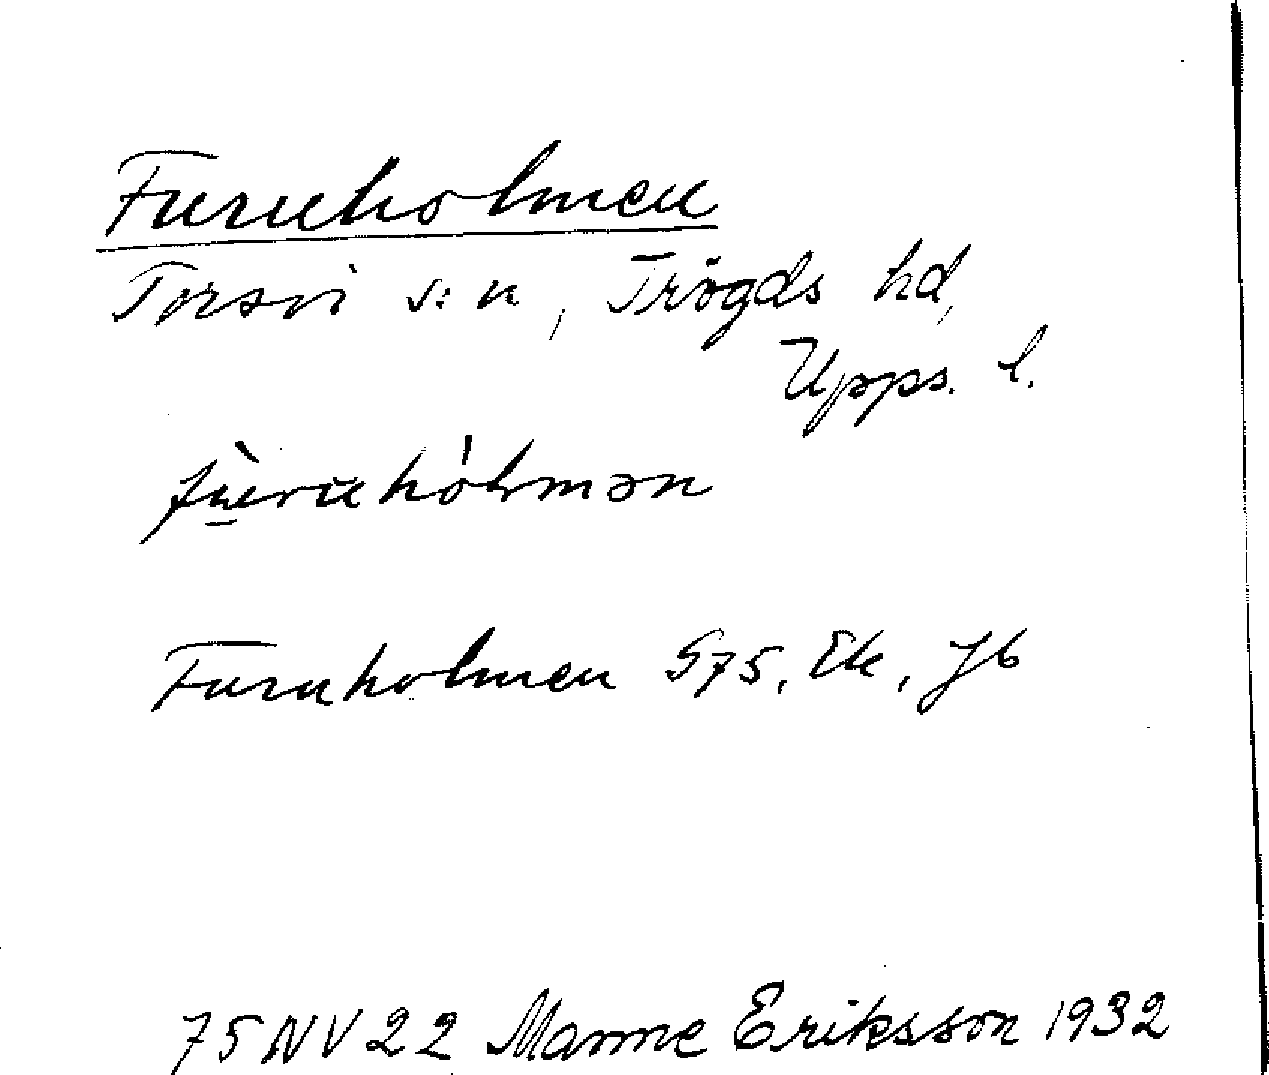 Furuholmen
Torsvi s:n, Trögds hd,
Upps. l.
fùruhólmən
Furuholmen G75, Ek, Jb
75NV22 Manne Eriksson 1932